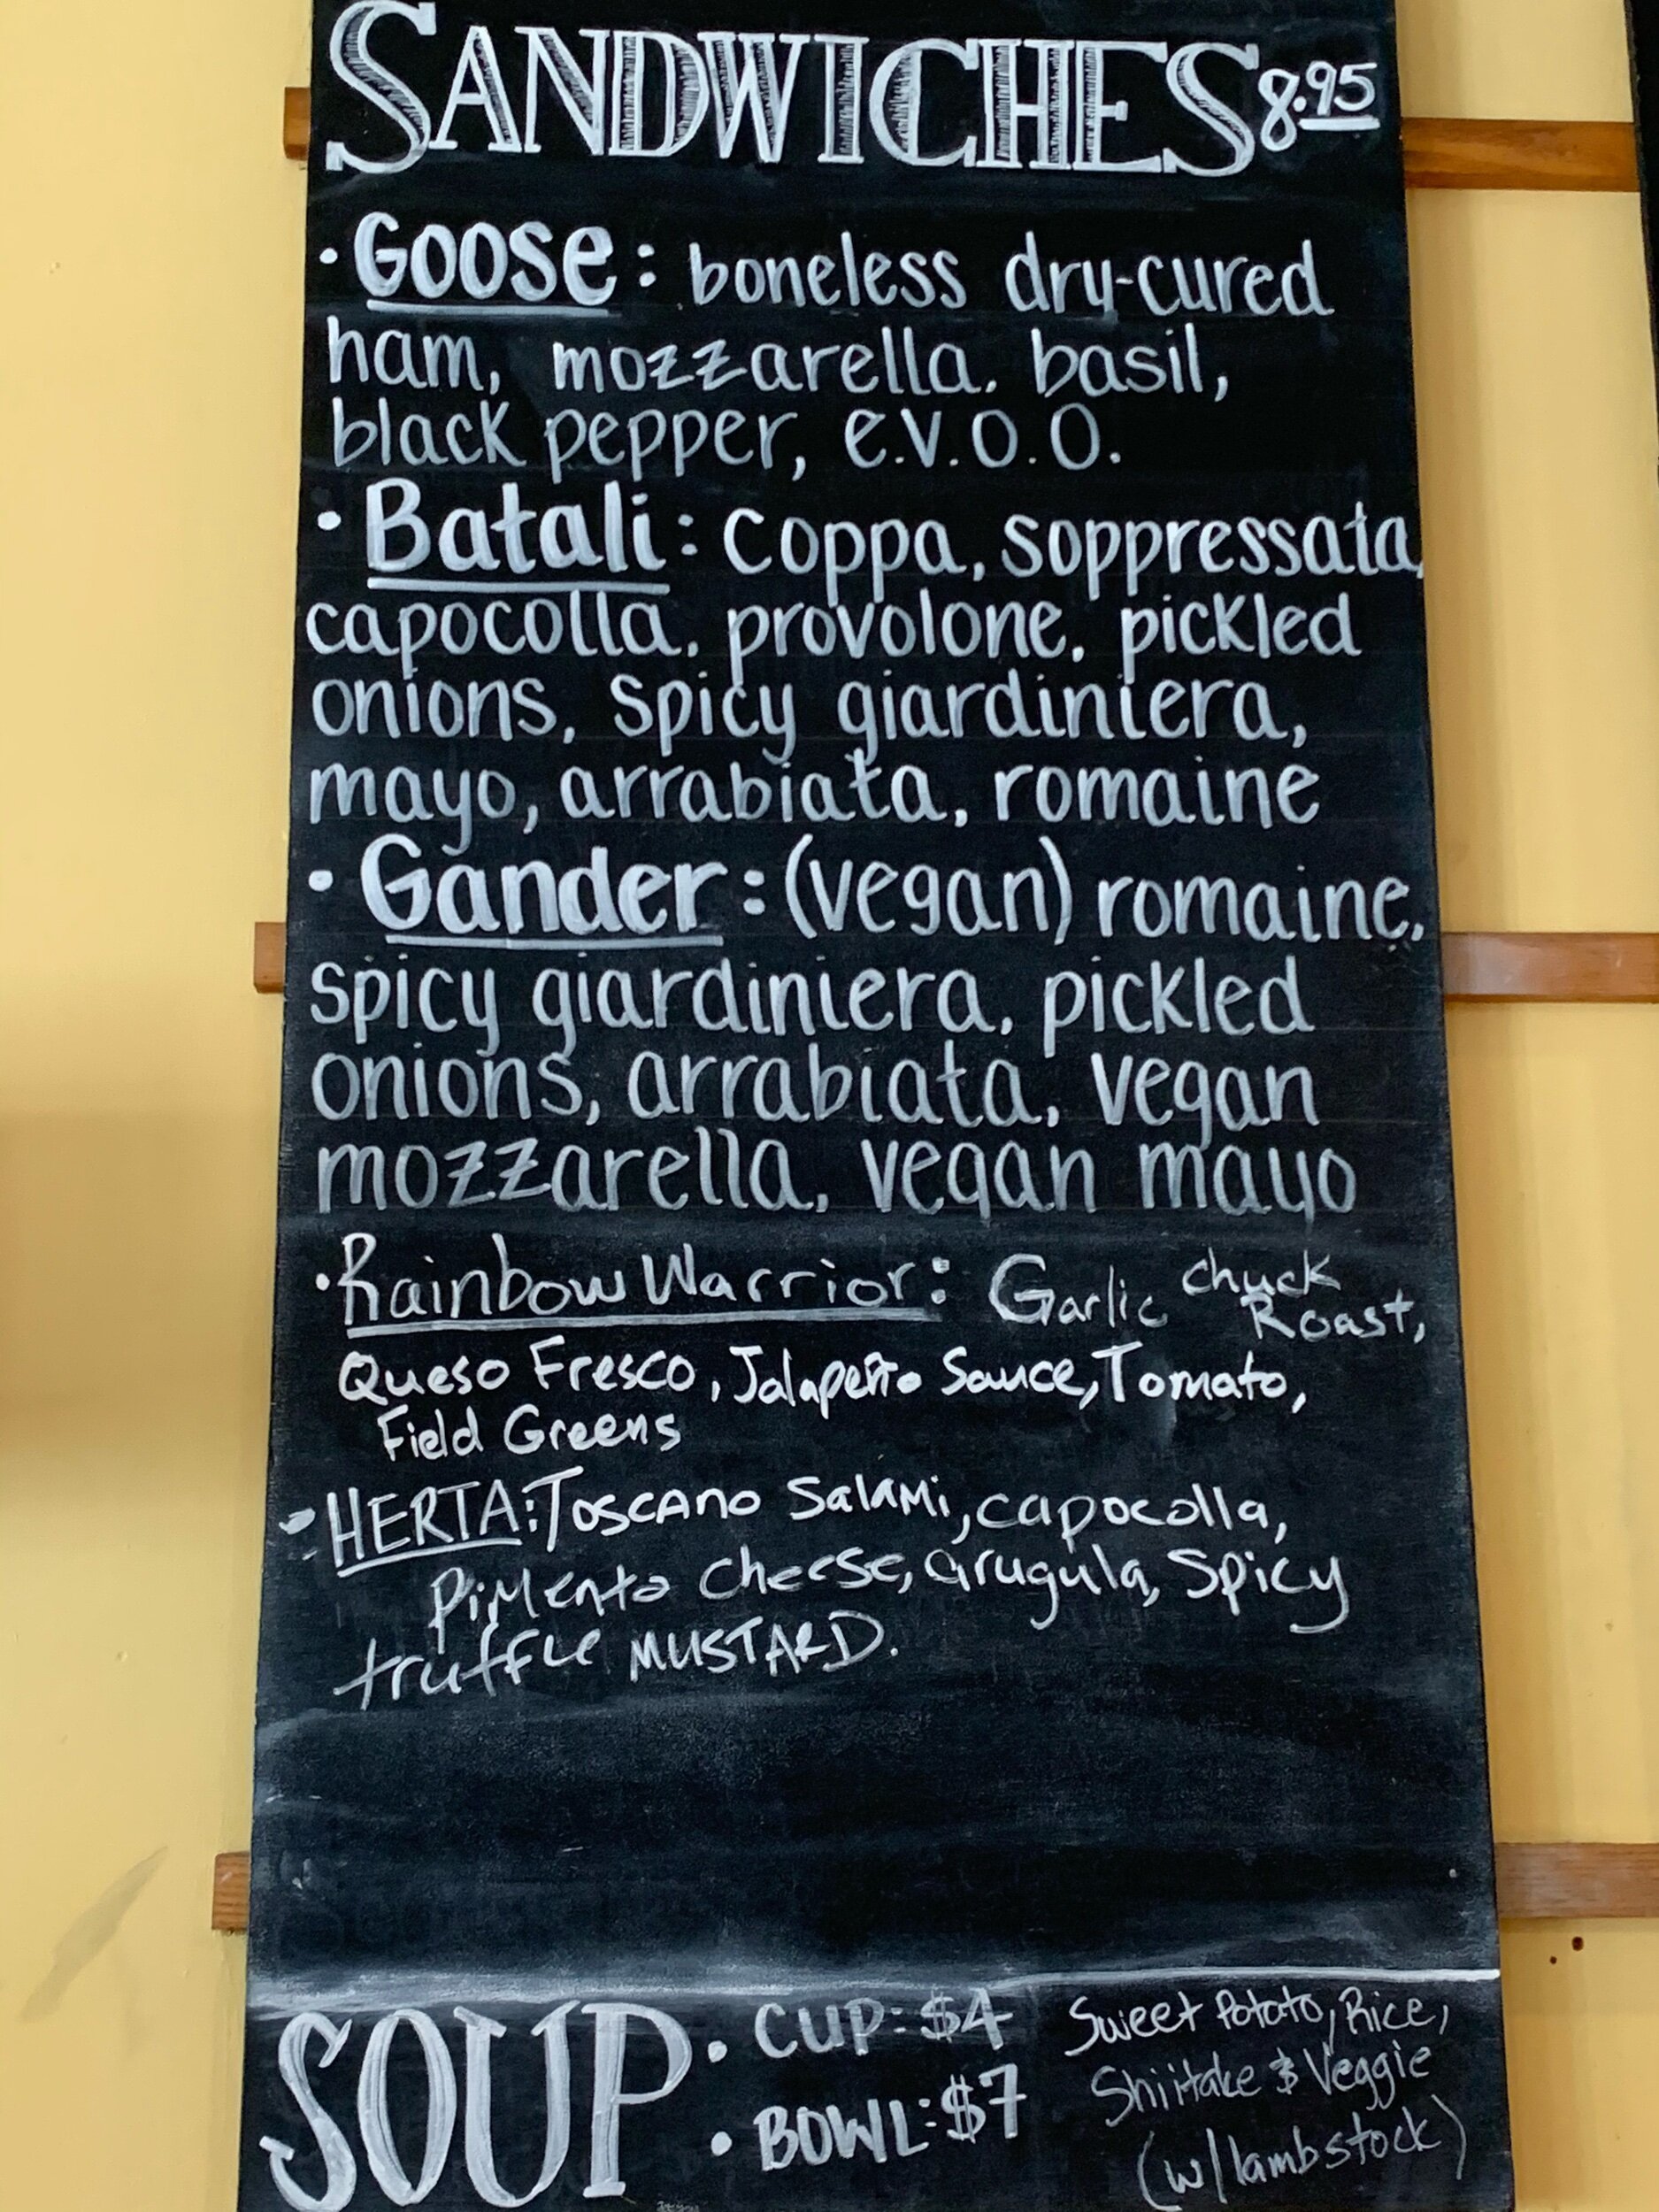 SANDWICHES 8.95
· Goose: boneless dry-cured
ham, mozzarella. basil,
black pepper, e.v.o.o.
· Batali: coppa, soppressata,
capocolla, provolone, pickled
onions, spicy giardiniera,
mayo, arrabiata, romaine
· Gander: (vegan) romaine,
spicy giardiniera, pickled
onions, arrabiata, vegan
mozzarella, vegan mayo
· Rainbow Warrior: Garlic chuck
Roast,
Queso Fresco, Jalapeño Sauce, Tomato,
Field Greens
· HERTA: Toscano Salami, capocolla,
Pimento cheese, arugula, Spicy
truffle MUSTARD.
SOUP
· CUP: $4
· BOWL: $7
Sweet Potato, Rice,
Shiitake & Veggie
(w/ lamb stock)